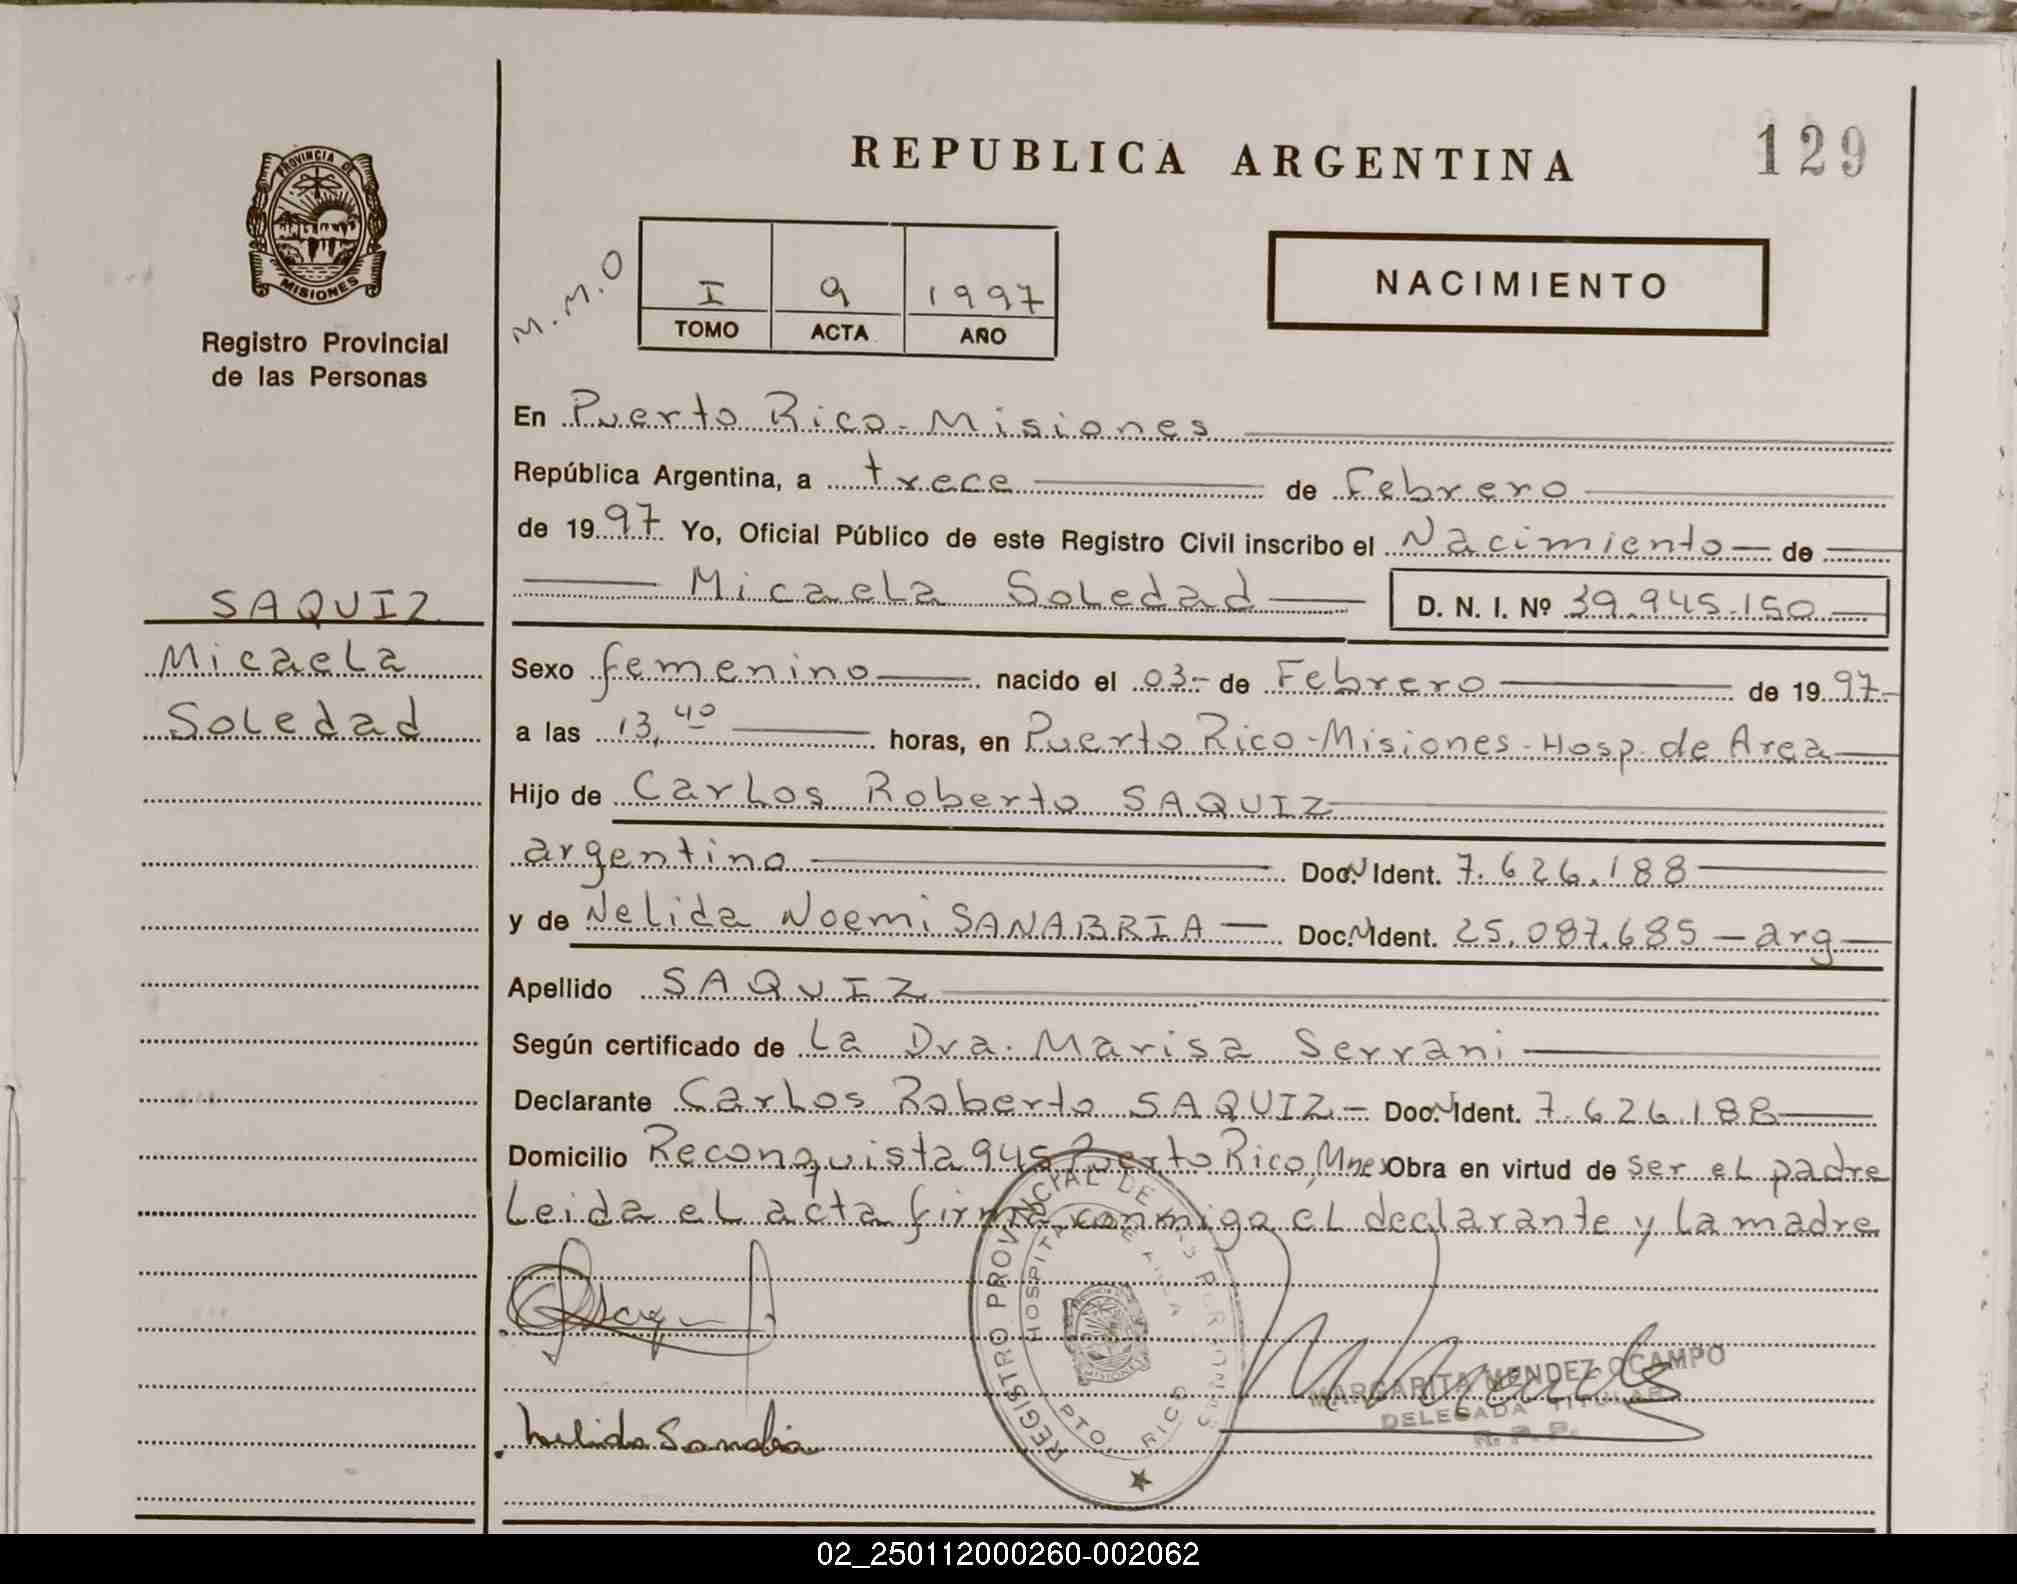 REPUBLICA ARGENTINA
129
PROVINCIA DE
MISIONES
Registro Provincial
de las Personas
M.M.O
I 9 1997
TOMO ACTA AÑO
NACIMIENTO
En Puerto Rico - Misiones
República Argentina, a trece de Febrero
de 1997 Yo, Oficial Público de este Registro Civil inscribo el Nacimiento de
Micaela Soledad D. N. I. Nº 39.945.150
SAQUIZ
Micaela
Soledad
Sexo femenino nacido el 03- de Febrero de 1997-
a las 13,40 horas, en Puerto Rico - Misiones - Hosp. de Area
Hijo de Carlos Roberto SAQUIZ
argentino Doc. Ident. 7.626.188
y de Nelida Noemi SANABRIA Doc. Ident. 25.087.685 - arg
Apellido SAQUIZ
Según certificado de La Dra. Marisa Serrani
Declarante Carlos Roberto SAQUIZ - Doc. Ident. 7.626.188
Domicilio Reconquista 945 Puerto Rico, Mnes Obra en virtud de ser el padre
Leida el acta firma conmigo el declarante y la madre
REGISTRO PROVINCIAL DE LAS PERSONAS
HOSPITAL DE AREA
MISIONES
PTO. RICO
MARGARITA MENDEZ OCAMPO
DELEGADA TITULAR
R. P. P.
Nelida Sanabria
02_250112000260-002062